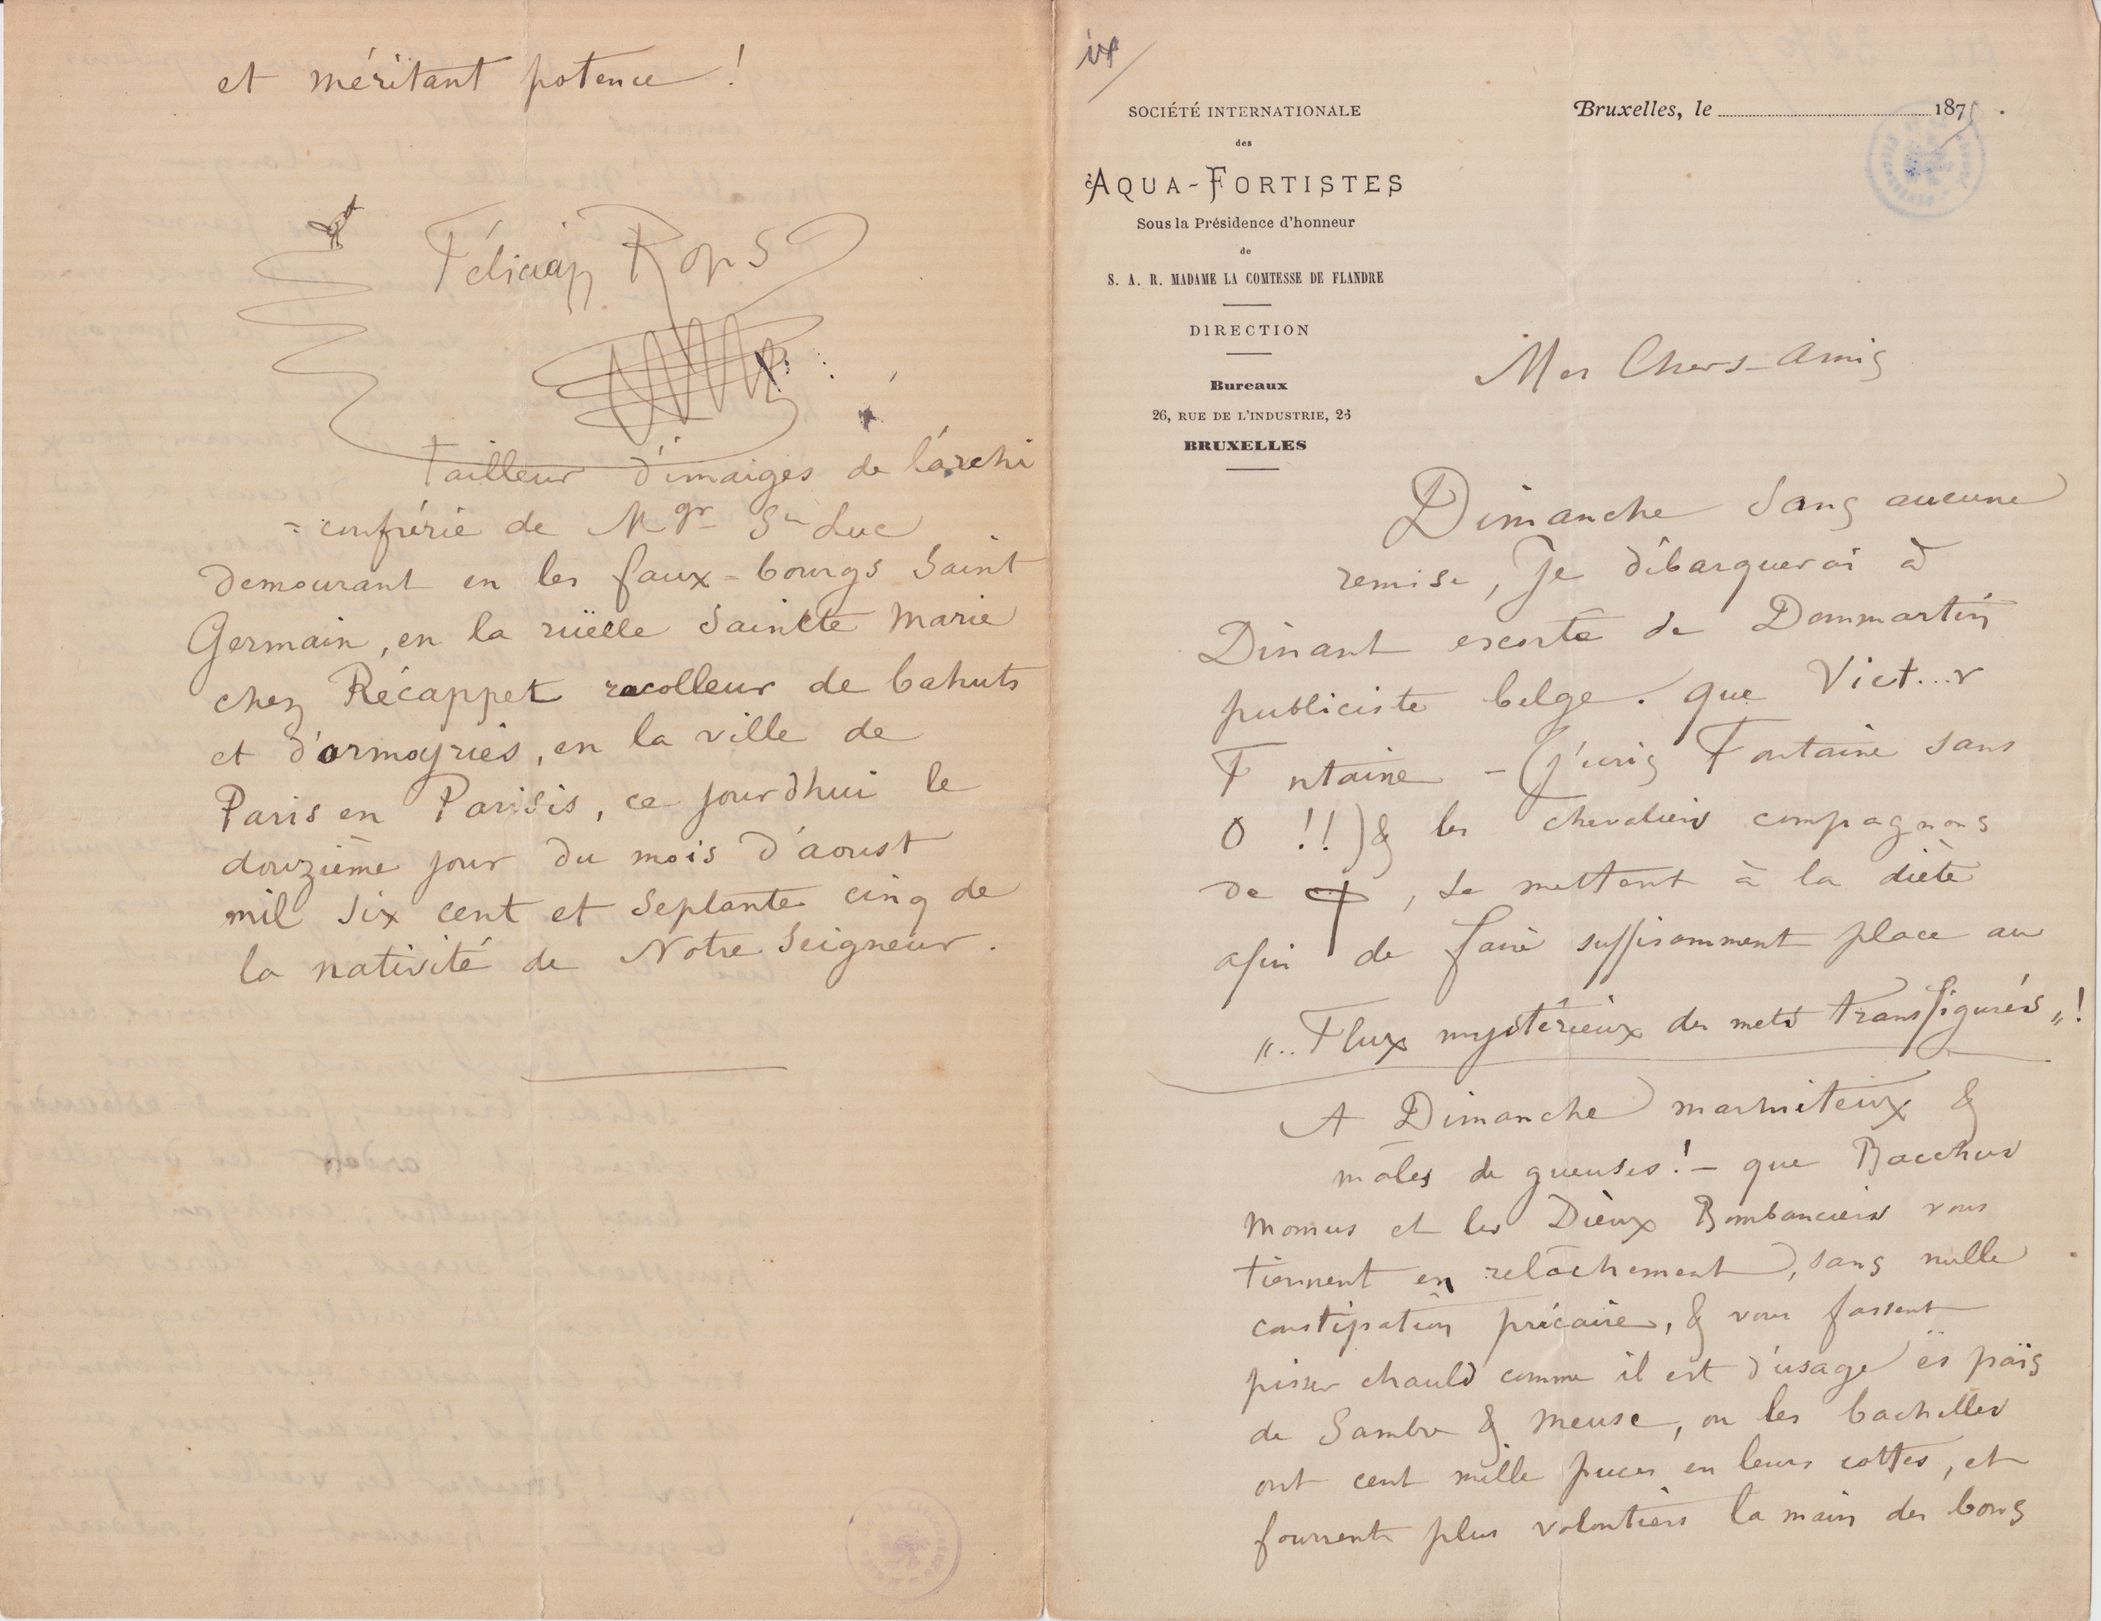 et méritant potence !
Félicien Rops
tailleur d'imaiges de l'archi
= confrérie de Mgr St Luc
demourant en les faux-bourgs Saint
Germain, en la rüelle Saincte Marie
chez Récappet racolleur de bahuts
et d'armoyries, en la ville de
Paris en Parisis, ce jourdhui le
douzième jour du mois d'aoust
mil six cent et septante cinq de
la nativité de Notre Seigneur.
SOCIÉTÉ INTERNATIONALE
des
AQUA-FORTISTES
Sous la Présidence d'honneur
de
S. A. R. MADAME LA COMTESSE DE FLANDRE
DIRECTION
Bureaux
26, RUE DE L'INDUSTRIE, 26
BRUXELLES
Bruxelles, le 1875.
Mes Chers-Amis
Dimanche sans aucune
remise, Je débarquerai à
Dinant escorté de Dommartin
publiciste belge. que Vict...r
F ntaine - (j'écris Fontaine sans
O !!) & les chevaliers compagnons
de , se mettent à la diète
afin de faire suffisamment place au
"..Flux mystérieux des mets transfigurés" !
A Dimanche marmiteux &
mâles de gueuses! - que Bacchus
Momus et les Dieux Bombanciers vous
tiennent en relâchement, sans nulle
constipation précaire, & vous fassent
pisser chauld comme il est d'usage ës païs
de Sambre & Meuse, ou les bachelles
ont cent mille puces en leurs cottes, et
fourrent plus volontiers la main des bons